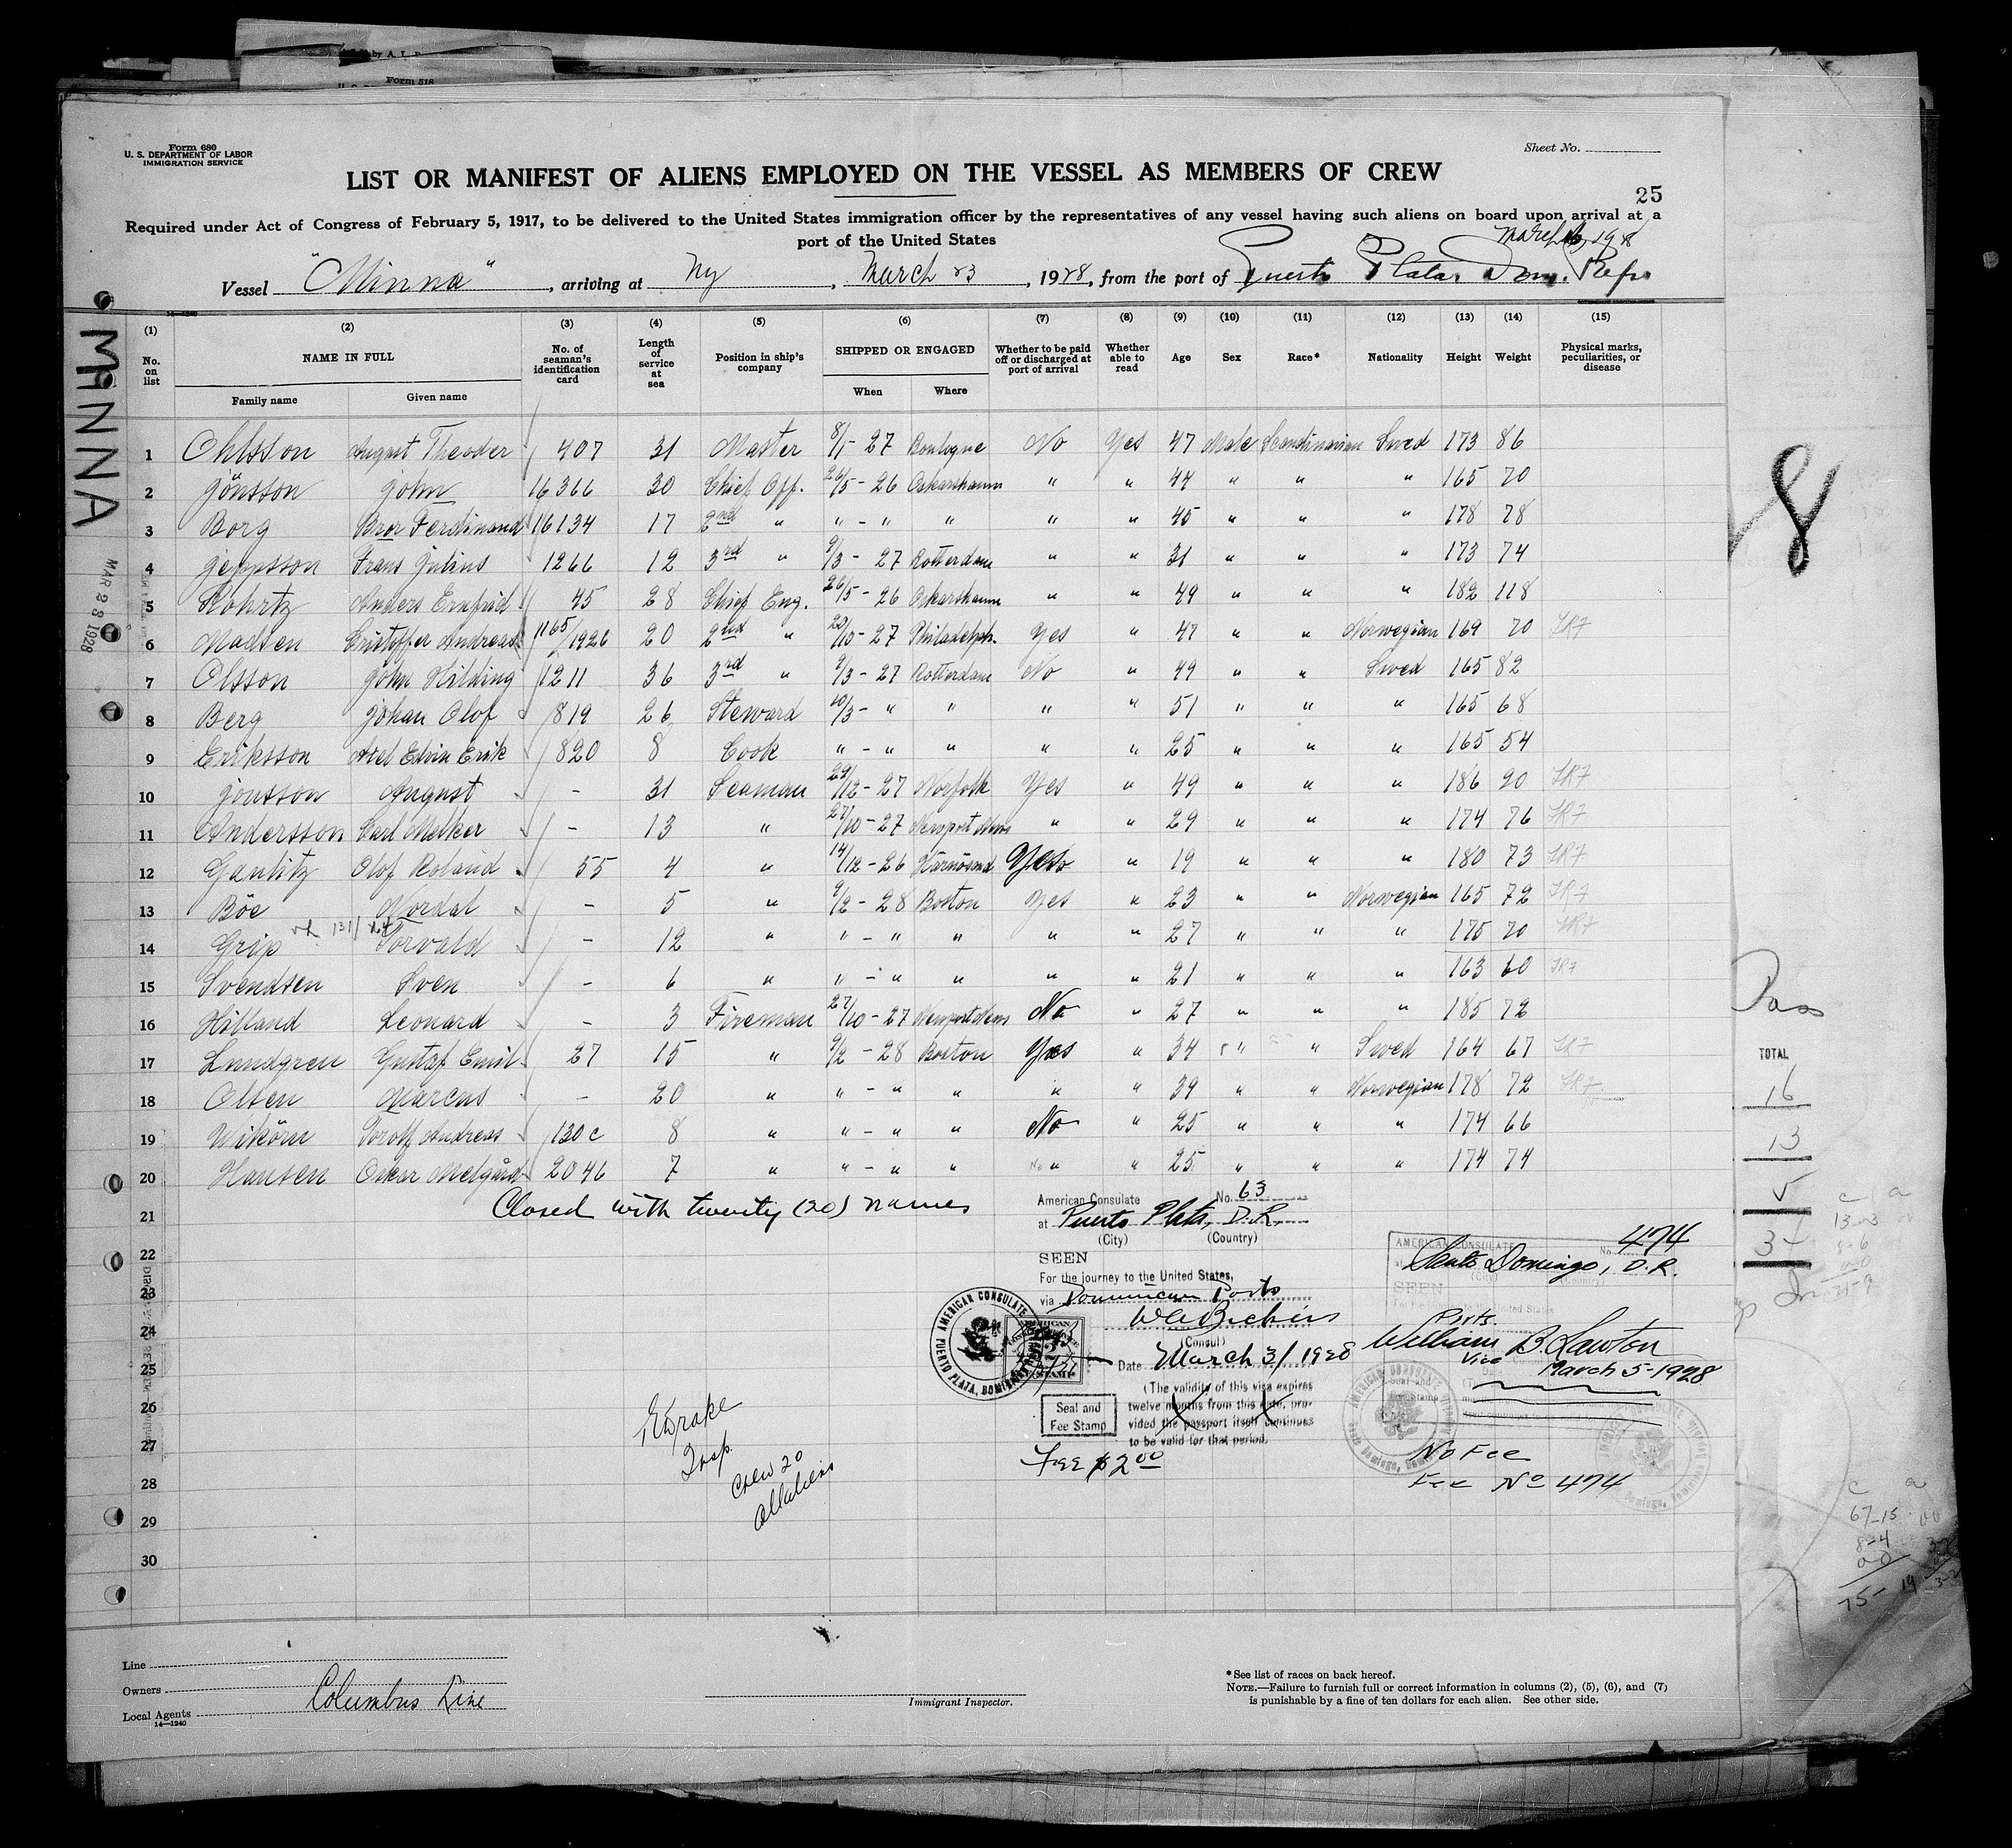 Form 680
U. S. DEPARTMENT OF LABOR
IMMIGRATION SERVICE
Sheet No.
LIST OR MANIFEST OF ALIENS EMPLOYED ON THE VESSEL AS MEMBERS OF CREW
25
Required under Act of Congress of February 5, 1917, to be delivered to the United States immigration officer by the representatives of any vessel having such aliens on board upon arrival at a
port of the United States
Vessel "Minna", arriving at Ny, March 23, 1928, from the port of Puerto Plata Dom. Rep.
MINNA
MAR 23 1928
(1) (2) (3) (4) (5) (6) (7) (8) (9) (10) (11) (12) (13) (14) (15)
No. on list NAME IN FULL No. of seaman's identification card Length of service at sea Position in ship's company SHIPPED OR ENGAGED Whether to be paid off or discharged at port of arrival Whether able to read Age Sex Race* Nationality Height Weight Physical marks, peculiarities, or disease
Family name Given name When Where
1 Ohlsson August Theodor 407 31 Master 8/1-27 Boulogne No Yes 47 Male Scandinavian Swed 173 86
2 Jönsson John 16366 30 Chief Off. 26/5-26 Oskarshamn " " 44 " " " 165 70
3 Borg Bror Ferdinand 16134 17 2nd " " - " " " " 45 " " " 178 78
4 Jeppsson Frans Julius 1266 12 3rd " 9/3-27 Rotterdam " " 31 " " " 173 74
5 Rohrtz Anders Ernfrid 45 28 Chief Eng. 26/5-26 Oskarshamn " " 49 " " " 182 118
6 Madsen Cristoffer Andreas 1165/1926 20 2nd " 20/10-27 Philadelph. Yes " 47 " " Norwegian 169 70
7 Olsson John Hilding 1211 36 3rd " 9/3-27 Rotterdam No " 49 " " Swed 165 82
8 Berg Johan Olof 819 26 Steward 10/3-" " " " 51 " " " 165 68
9 Eriksson Axel Edvin Erik 820 8 Cook " - " " " " 25 " " " 165 54
10 Jönsson August - 31 Seaman 29/12-27 Norfolk Yes " 49 " " " 186 90
11 Andersson Carl Melker - 13 " 27/10-27 Newport News " " 29 " " " 174 76
12 Gantitz Olof Roland 55 4 " 14/12-26 Härnösand Yes " 19 " " " 180 73
13 Böe Nordal - 5 " 9/2-28 Boston Yes " 23 " " Norwegian 165 72
14 Grip Torvald - 12 " " - " " " " 27 " " " 175 70
15 Svendsen Sven - 6 " " - " " " " 21 " " " 163 60
16 Hilland Leonard - 3 Fireman 27/10-27 Newport News No " 27 " " " 185 72
17 Lundgren Gustaf Emil 27 15 " 9/2-28 Boston Yes " 34 " " Swed 164 67
18 Olsen Marcus - 20 " " - " " " " 39 " " Norwegian 178 72
19 Wikörn Torolf Andreas 130 c 8 " " - " " No " 25 " " " 174 66
20 Hansen Oskar Melgård 2046 7 " " - " " " " 25 " " " 174 74
21 Closed with twenty (20) names
22
23
24
25
26
27
28
29
30
American Consulate No. 63
at Puerto Plata, D.R.
(City) (Country)
SEEN
For the journey to the United States,
via Dominican Ports
(Consul)
Date March 3/1928
(The validity of this visa expires
twelve months from this date, pro-
vided the passport itself continues
to be valid for that period.
Seal and
Fee Stamp
Fee $2.00
AMERICAN CONSULATE
PUERTO PLATA,
AMERICAN CONSULATE No. 474
Santo Domingo, D.R.
SEEN
Ports.
William B. Lawton
Vice
March 5-1928
No Fee
Fee No 474
Drake
Insp.
Crew 20
all aliens
8
Pass
TOTAL
16
13
5
34
Line
Owners
Local Agents
Columbus Line
14—1240
Immigrant Inspector.
*See list of races on back hereof.
NOTE.—Failure to furnish full or correct information in columns (2), (5), (6), and (7)
is punishable by a fine of ten dollars for each alien. See other side.